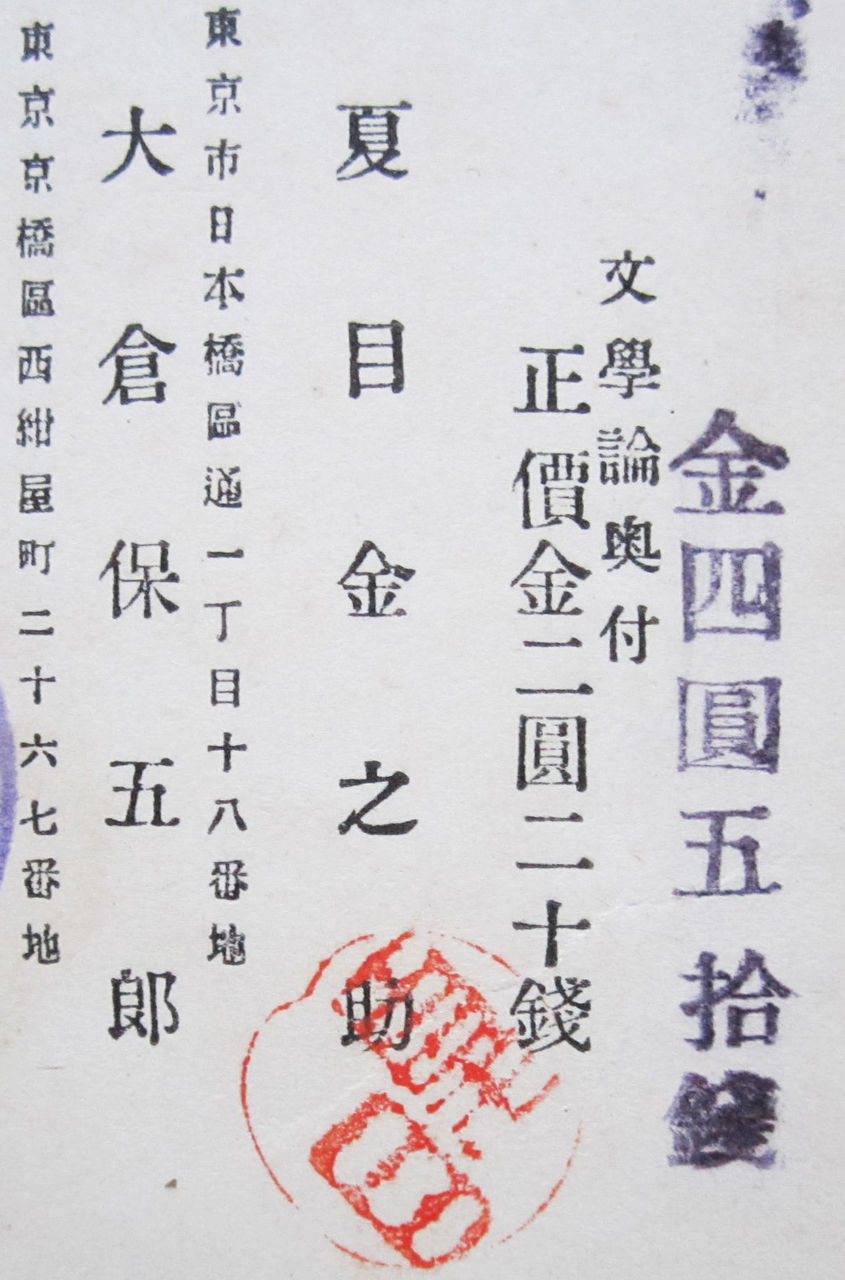 金四圓五拾錢
文學論奥付
正價金二圓二十錢
夏目金之助
夏目
東京市日本橋區通一丁目十八番地
大倉保五郎
東京京橋區西紺屋町二十六七番地